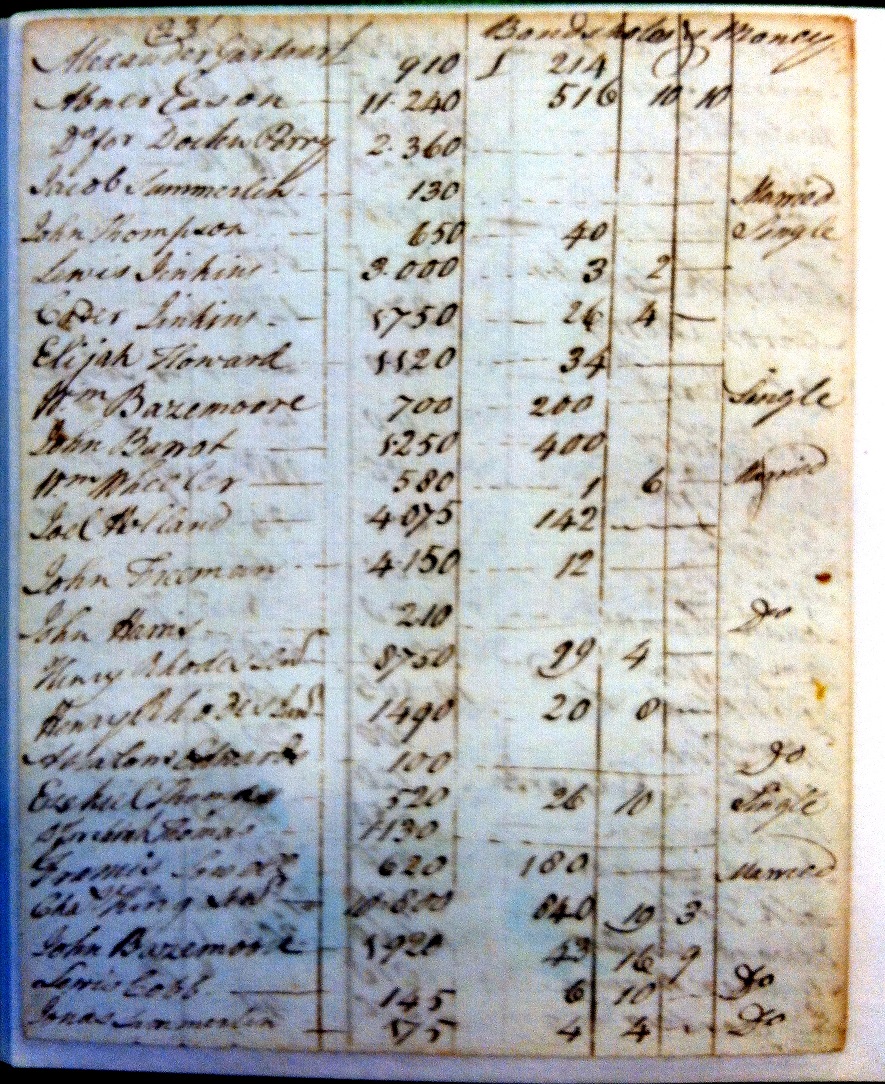 Bonds Money
Alexander Gardner 910 £ 214
Abner Eason 11.240 516 10 10
Do for Perry 2.360
Jacob Summerlin 130 Married
John Thompson 650 40 Single
Lewis Jinkins 3.000 3 2
Jinkins 1750 26 4
Elijah Howard 1120 34
Wm Bazemoore 700 200 Single
John Barrot 1250 400
Wm Wheeler 580 1 6 Married
Joel Holland 4075 142
John Freeman 4.150 12
John Harris 210 Do
Henry Rhodes 8750 99 4
Henry Rhodes 1490 20 0
Edwards 100 Do
Ezekiel Thomas 520 26 10 Single
Thomas 1130
620 180 Married
King 10.800 640 19 3
John Bazemoore 1920 43 16 9
Lewis Cobb 145 6 10 Do
Jonas Summerlin 175 4 4 Do